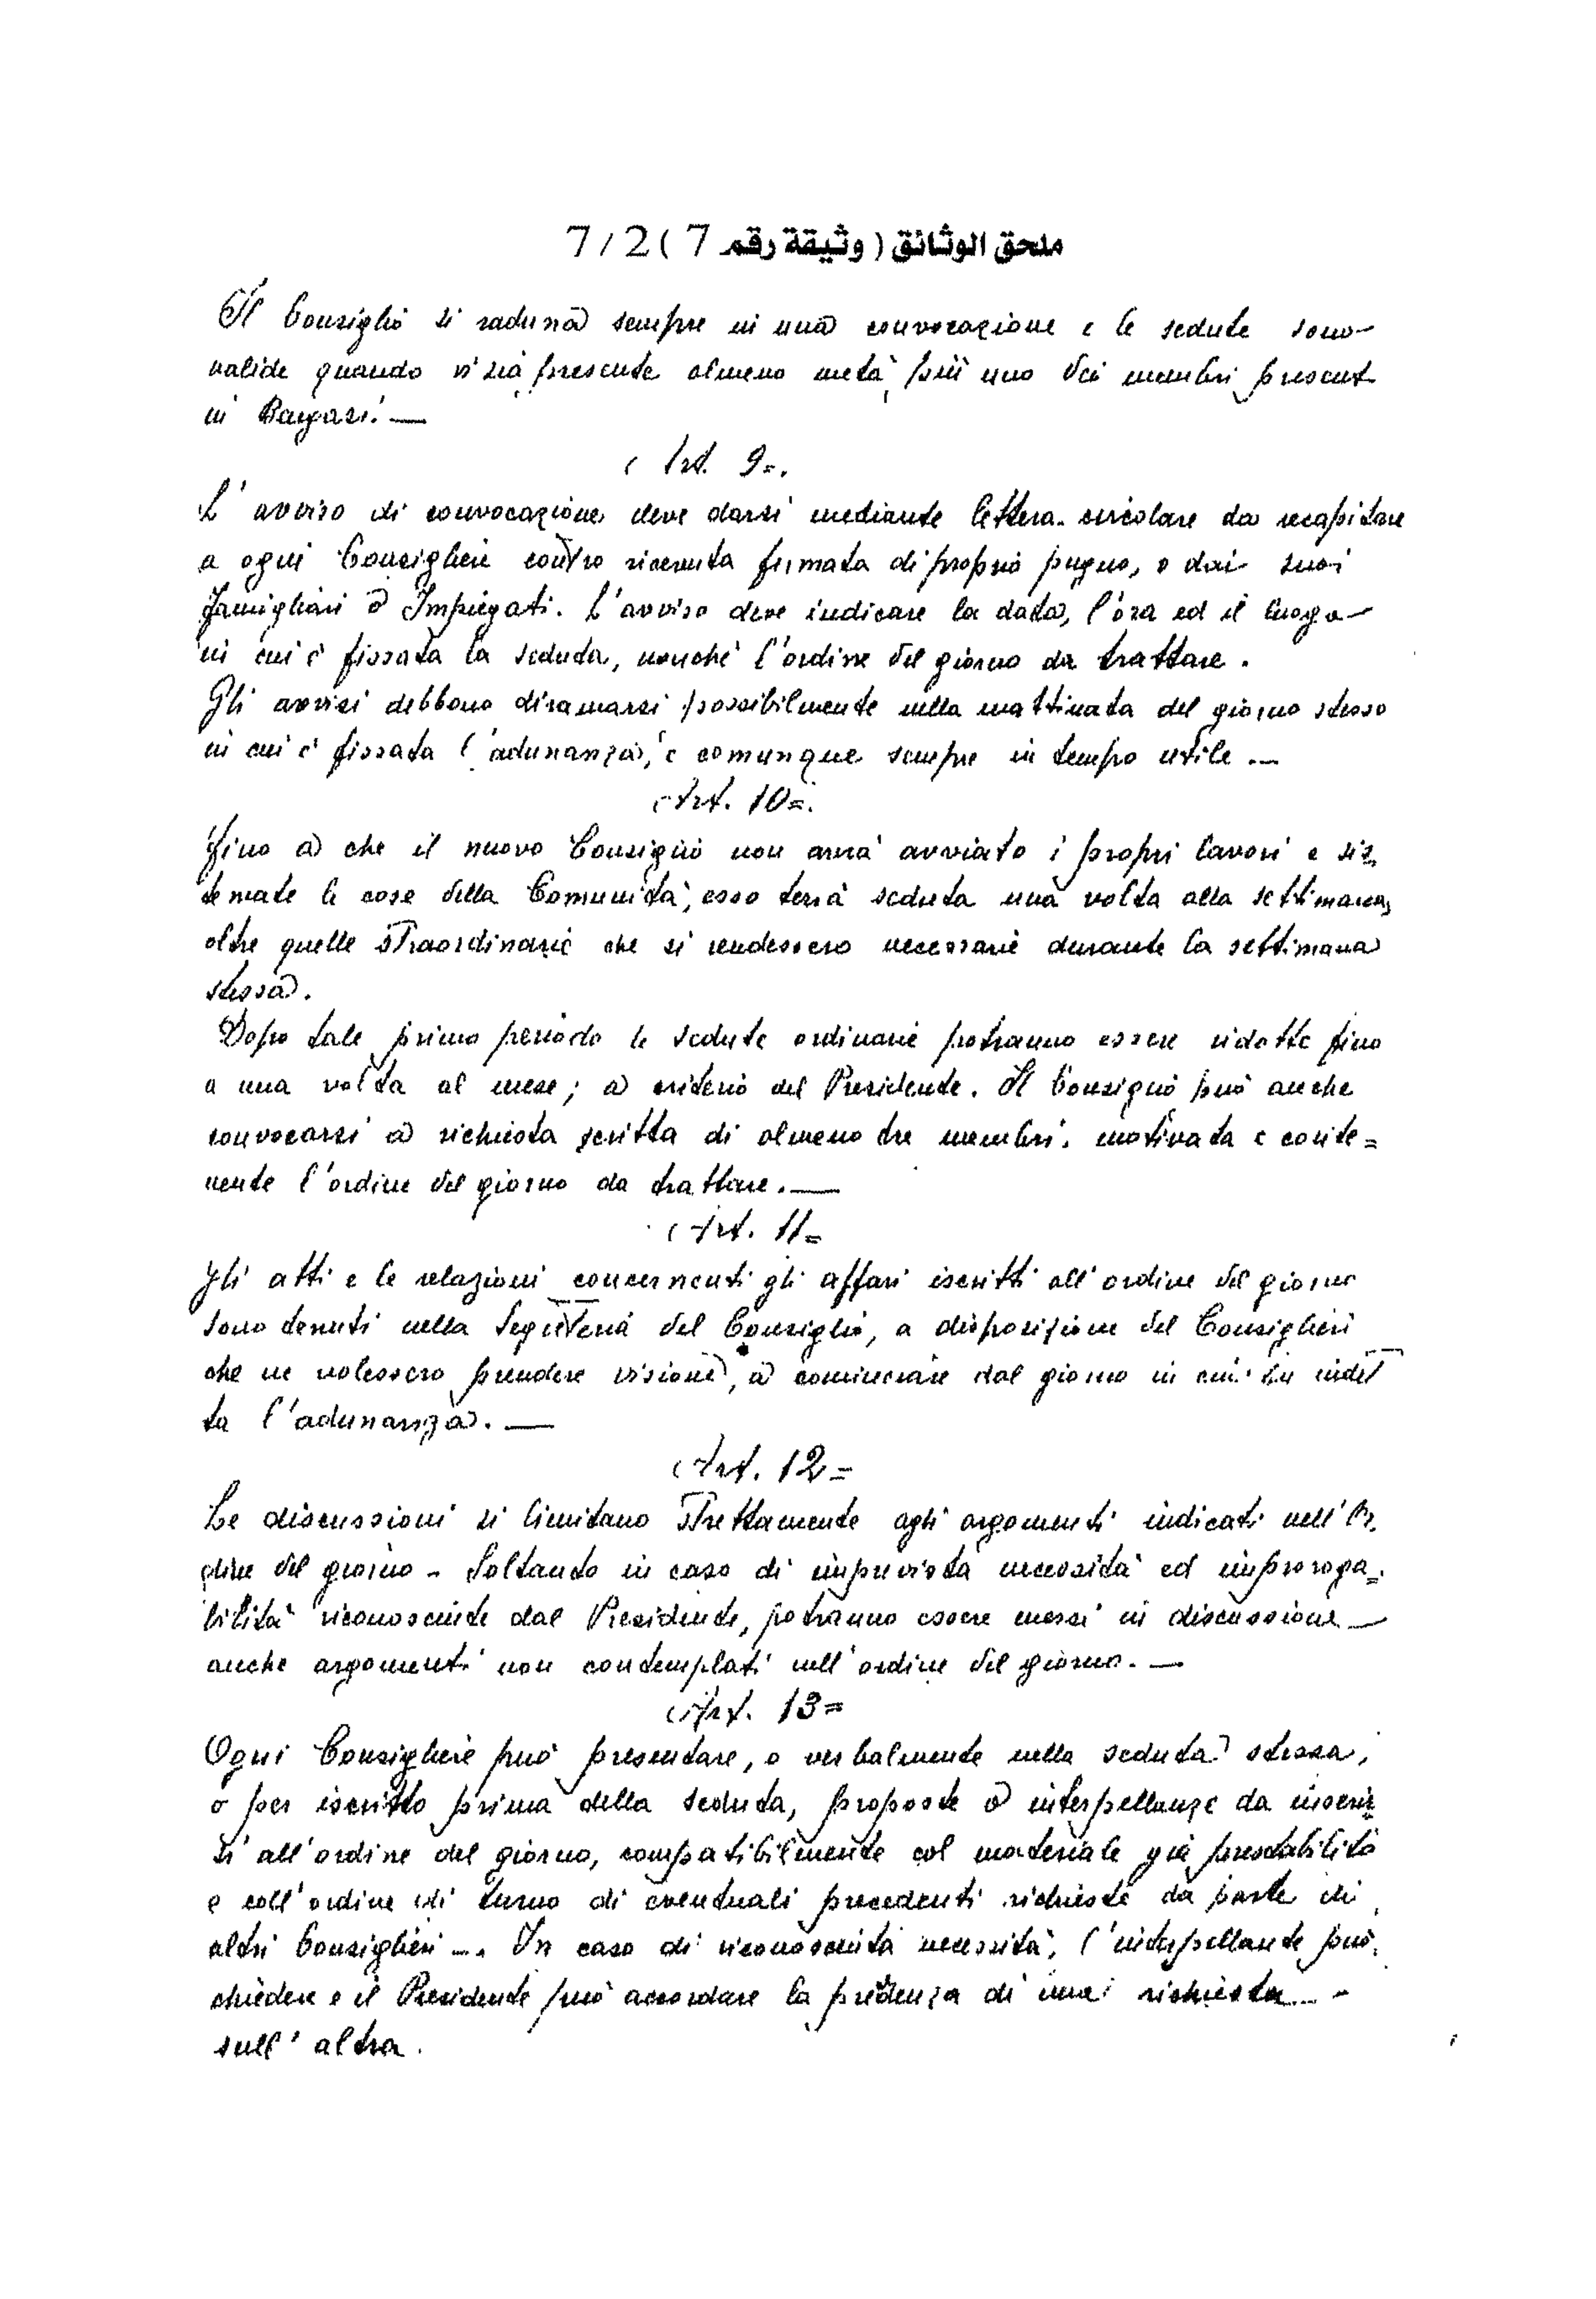 ملحق الوثائق ( وثيقة رقم 7 ) 7/2
Il Consiglio si raduna sempre in una convocazione e le sedute sono
valide quando vi sia presente almeno metà più uno dei membri present
in Bengasi. —
Art. 9=.
L'avviso di convocazione deve darsi mediante lettera circolare da recapitare
a ogni Consigliere contro ricevuta firmata di proprio pugno, o dai suoi
Famigliari o Impiegati. L'avviso deve indicare la data, l'ora ed il luogo
in cui è fissata la seduta, nonchè l'ordine del giorno da trattare.
Gli avvisi debbono diramarsi possibilmente nella mattinata del giorno stesso
in cui è fissata l'adunanza, e comunque sempre in tempo utile. —
Art. 10=.
Fino a che il nuovo Consiglio non avrà avviato i propri lavori e sis=
temate le cose della Comunità, esso terrà seduta una volta alla settimana,
oltre quelle straordinarie che si rendessero necessarie durante la settimana
stessa.
Dopo tale primo periodo le sedute ordinarie potranno essere ridotte fino
a una volta al mese; a criterio del Presidente. Il Consiglio può anche
convocarsi a richiesta scritta di almeno tre membri, motivata e conte=
nente l'ordine del giorno da trattare. —
Art. 11=
Gli atti e le relazioni concernenti gli affari iscritti all'ordine del giorno
sono tenuti nella Segreteria del Consiglio, a disposizione dei Consiglieri
che ne volessero prendere visione, a cominciare dal giorno in cui
ta l'adunanza. —
Art. 12=
Le discussioni si limitano strettamente agli argomenti indicati nell'Or=
dine del giorno - Soltanto in caso di imprevista necessità ed improroga=
bilità riconosciute dal Presidente, potranno essere messi in discussione
anche argomenti non contemplati nell'ordine del giorno. —
Art. 13=
Ogni Consigliere può presentare, o verbalmente nella seduta stessa,
o per iscritto prima della seduta, proposte o interpellanze da inserir=
si all'ordine del giorno, compatibilmente col materiale già prestabilito
e coll'ordine di turno di eventuali precedenti richieste da parte di
altri Consiglieri -. In caso di riconosciuta necessità, l'interpellante può
chiedere e il Presidente può accordare la di una richiesta
sull'altra.